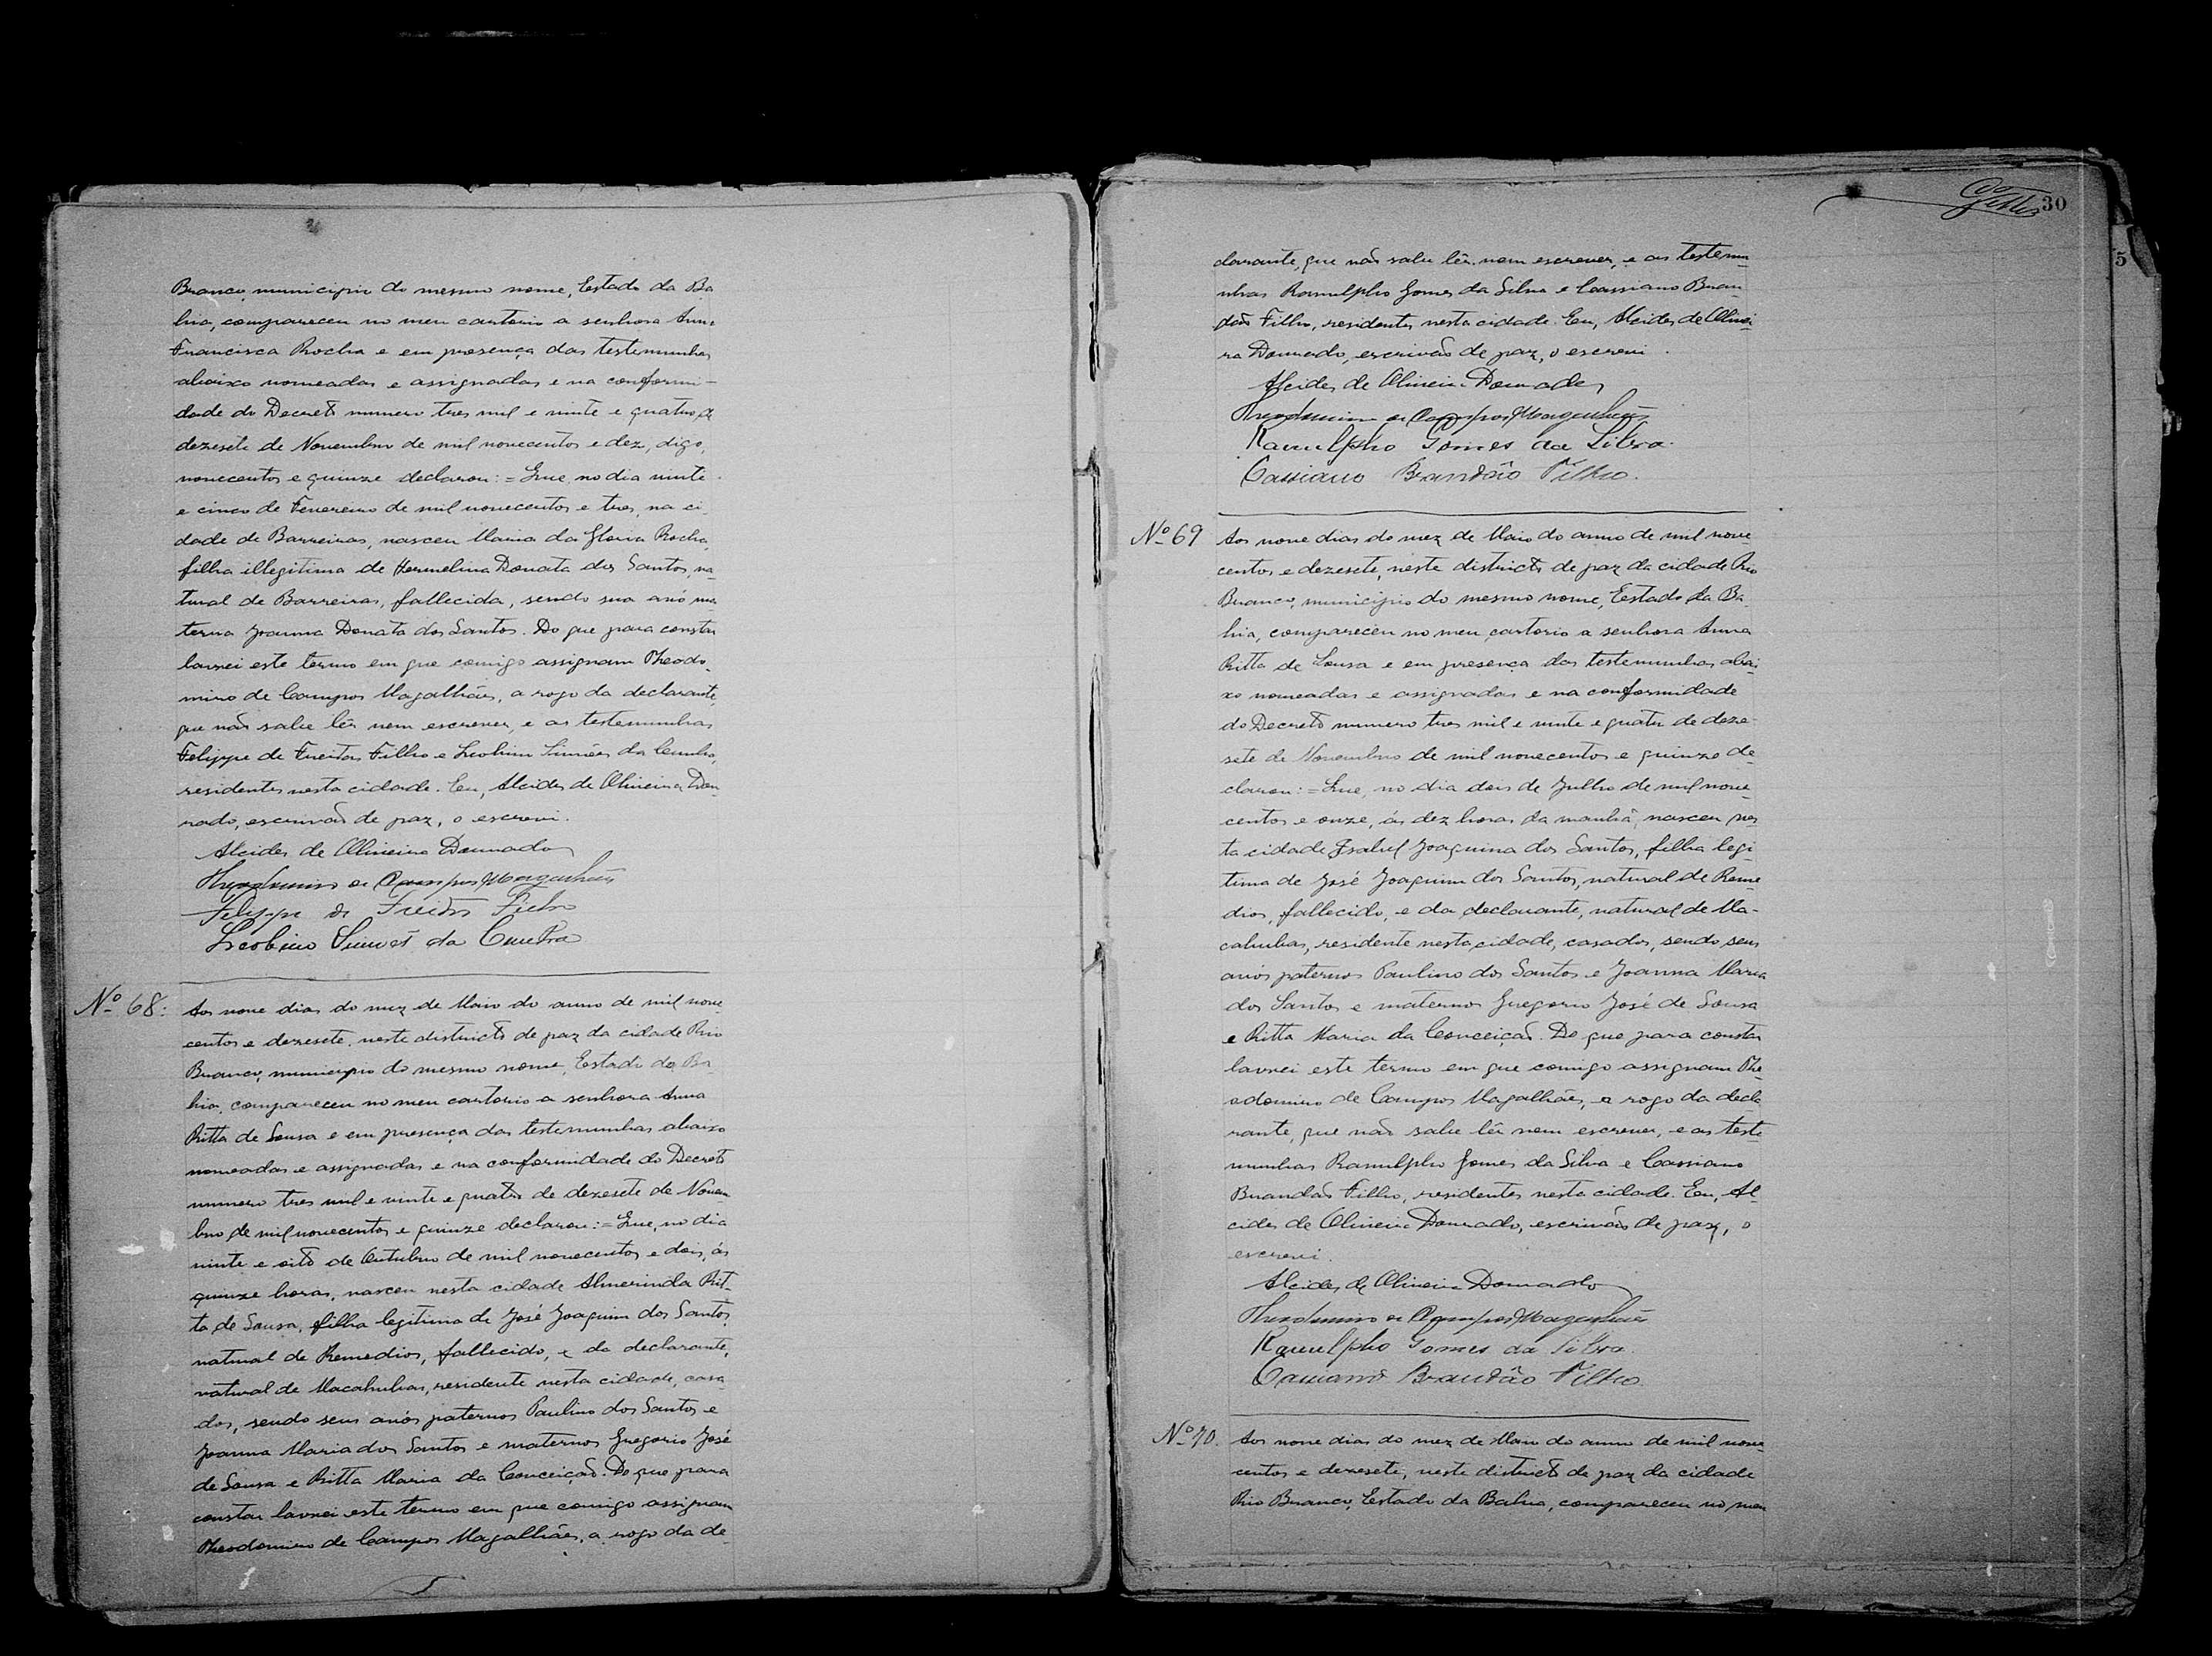 Branco, municipio do mesmo nome, Estado da Ba
hia, compareceu no meu cartorio a senhora Anna
Francisca Rocha e em presença das testemunhas
abaixo nomeadas e assignadas e na conformi-
dade do Decreto numero tres mil e vinte e quatro, de
dezesete de Novembro de mil novecentos e dez, digo,
novecentos e quinze declarou: = Que, no dia vinte
e cinco de Fevereiro de mil novecentos e tres, na ci-
dade de Barreiras, nasceu Maria da Gloria Rocha,
filha illegitima de Hermelina Donata dos Santos, na-
tural de Barreiras, fallecida, sendo sua avó ma
terna Joanna Donata dos Santos. Do que para constar
lavrei este termo em que comigo assignam Theodo-
miro de Campos Magalhães, a rogo da declarante,
que não sabe lêr nem escrever, e as testemunhas
Felippe de Freitas Filho e Leobino Simões da Cunha,
residentes nesta cidade. Eu, Alcides de Oliveira Dou-
rado, escrivão de paz, o escrevi.
Alcides de Oliveira Dourado
Theodomiro de Campos Magalhães
Felippe de Freitas Filho
Leobino Simões da Cunha
Nº 68: Aos nove dias do mez de Maio do anno de mil nove
centos e dezesete, neste districto de paz da cidade Rio
Branco, municipio do mesmo nome, Estado da Ba-
hia, compareceu no meu cartorio a senhora Anna
Ritta de Sousa e em presença das testemunhas abaixo
nomeadas e assignadas e na conformidade do Decreto
numero tres mil e vinte e quatro de dezesete de Novem
bro de mil novecentos e quinze declarou: = Que, no dia
vinte e oito de Outubro de mil novecentos e dois, ás
quinze horas, nasceu nesta cidade Almerinda Rit-
ta de Sousa, filha legitima de José Joaquim dos Santos,
natural de Remedios, fallecido, e da declarante,
natural de Macahubas, residente nesta cidade, casa-
dos, sendo seus avós paternos Paulino dos Santos e
Joanna Maria dos Santos e maternos Gregorio José
de Sousa e Ritta Maria da Conceição. Do que para
constar lavrei este termo em que comigo assignam
Theodomiro de Campos Magalhães, a rogo da de
30
5
clarante, que não sabe lêr nem escrever, e as testemu
nhas Ramulpho Gomes da Silva e Cassiano Bran-
dão Filho, residentes nesta cidade. Eu, Alcides de Olivei
ra Dourado, escrivão de paz, o escrevi.
Alcides de Oliveira Dourado
Theodomiro de Campos Magalhães
Ramulpho Gomes da Silva.
Cassiano Brandão Filho.
Nº 69 Aos nove dias do mez de Maio do anno de mil nove
centos e dezesete, neste districto de paz da cidade Rio
Branco, municipio do mesmo nome, Estado da Ba-
hia, compareceu no meu cartorio a senhora Anna
Ritta de Sousa e em presença das testemunhas abai
xo nomeadas e assignadas e na conformidade
do Decreto numero tres mil e vinte e quatro de deze-
sete de Novembro de mil novecentos e quinze de-
clarou: = Que, no dia dois de Julho de mil nove-
centos e onze, ás dez horas da manhã, nasceu nes
ta cidade Isabel Joaquina dos Santos, filha legi-
tima de José Joaquim dos Santos, natural de Reme-
dios, fallecido, e da declarante, natural de Ma-
cahubas, residente nesta cidade, casados, sendo seus
avós paternos Paulino dos Santos e Joanna Maria
dos Santos e maternos Gregorio José de Sousa
e Ritta Maria da Conceição. Do que para constar
lavrei este termo em que comigo assignam The-
odomiro de Campos Magalhães, a rogo da decla
rante, que não sabe lêr nem escrever, e as teste
munhas Ramulpho Gomes da Silva e Cassiano
Brandão Filho, residentes nesta cidade. Eu, Al-
cides de Oliveira Dourado, escrivão de paz, o
escrevi.
Alcides de Oliveira Dourado
Theodomiro de Campos Magalhães
Ramulpho Gomes da Silva.
Cassiano Brandão Filho.
Nº 70. Aos nove dias do mez de Maio do anno de mil nove
centos e dezesete, neste districto de paz da cidade
Rio Branco, Estado da Bahia, compareceu no meu